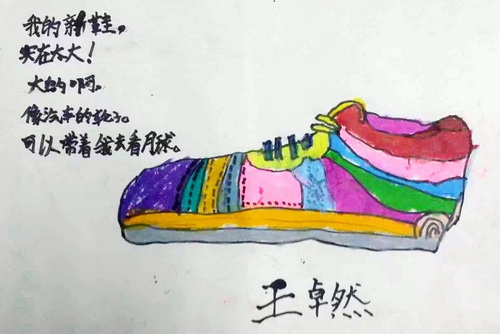 我的新鞋，
实在太大！
大的啊。
像汽车的轮子。
可以带着我去看月球。
王卓然